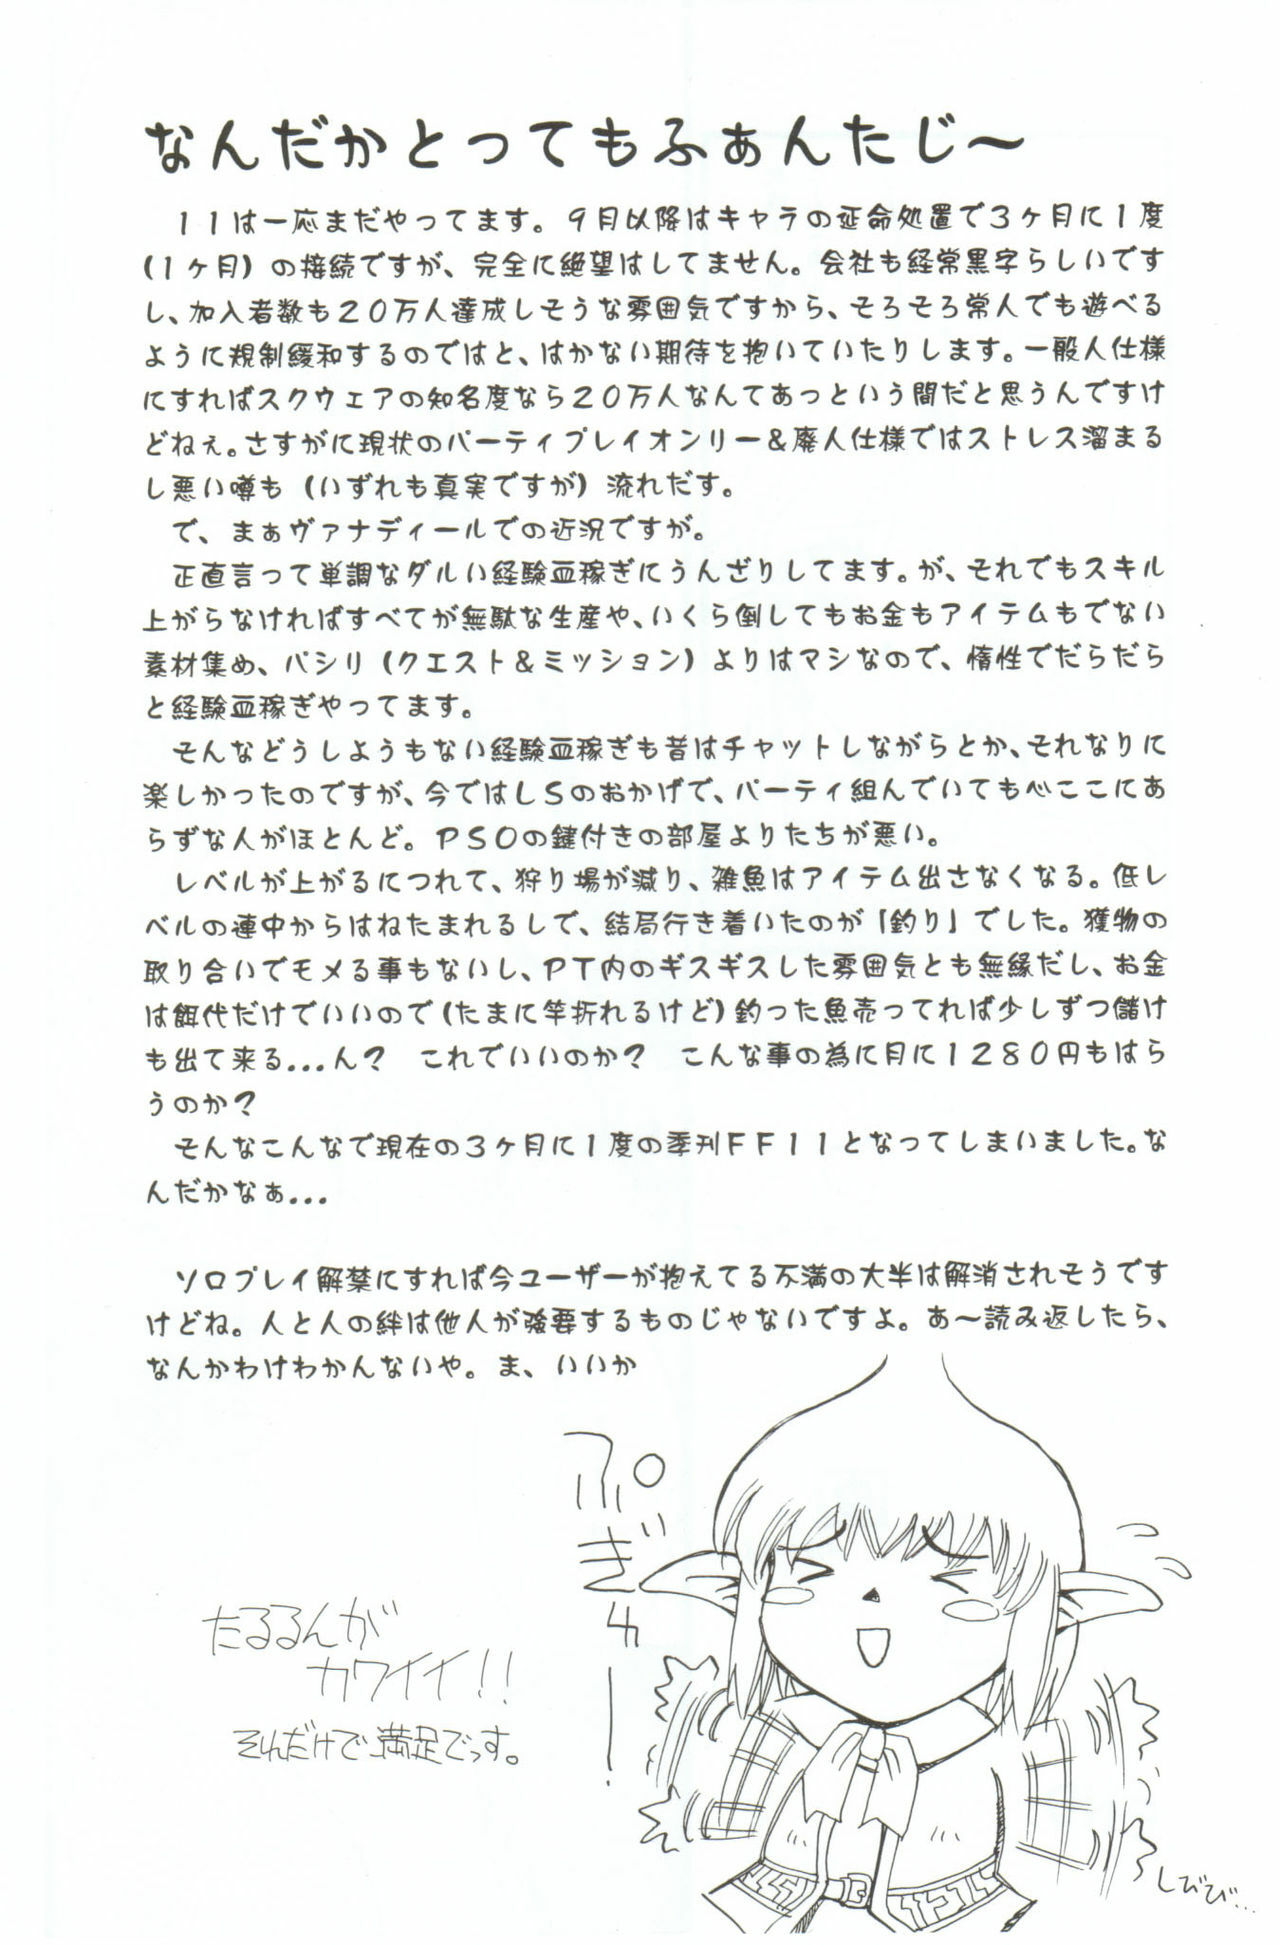 なんだかとってもふぁんたじ～
１１は一応まだやってます。９月以降はキャラの延命処置で３ヶ月に１度
(１ヶ月）の接続ですが、完全に絶望はしてません。会社も経常黒字らしいです
し、加入者数も２０万人達成しそうな雰囲気ですから、そろそろ常人でも遊べる
ように規制緩和するのではと、はかない期待を抱いていたりします。一般人仕様
にすればスクウェアの知名度なら２０万人なんてあっという間だと思うんですけ
どねぇ。さすがに現状のパーティプレイオンリー＆廃人仕様ではストレス溜まる
し悪い噂も（いずれも真実ですが）流れだす。
で、まぁヴァナディールでの近況ですが。
正直言って単調なダルい経験血稼ぎにうんざりしてます。が、それでもスキル
上がらなければすべてが無駄な生産や、いくら倒してもお金もアイテムもでない
素材集め、パシリ（クエスト＆ミッション）よりはマシなので、惰性でだらだら
と経験血稼ぎやってます。
そんなどうしようもない経験血稼ぎも昔はチャットしながらとか、それなりに
楽しかったのですが、今ではＬＳのおかげで、パーティ組んでいても心ここにあ
らずな人がほとんど。ＰＳＯの鍵付きの部屋よりたちが悪い。
レベルが上がるにつれて、狩り場が減り、雑魚はアイテム出さなくなる。低レ
ベルの連中からはねたまれるしで、結局行き着いたのが「釣り」でした。獲物の
取り合いでモメる事もないし、ＰＴ内のギスギスした雰囲気とも無縁だし、お金
は餌代だけでいいので(たまに竿折れるけど)釣った魚売ってれば少しずつ儲け
も出て来る...ん？　これでいいのか？　こんな事の為に月に１２８０円もはら
うのか？
そんなこんなで現在の３ヶ月に１度の季刊ＦＦ１１となってしまいました。な
んだかなぁ...
ソロプレイ解禁にすれば今ユーザーが抱えてる不満の大半は解消されそうです
けどね。人と人の絆は他人が強要するものじゃないですよ。あ～読み返したら、
なんかわけわかんないや。ま、いいか
ぷぎぃー！
たるるんが
カワイイ！！
それだけで満足でっす。
しびび…